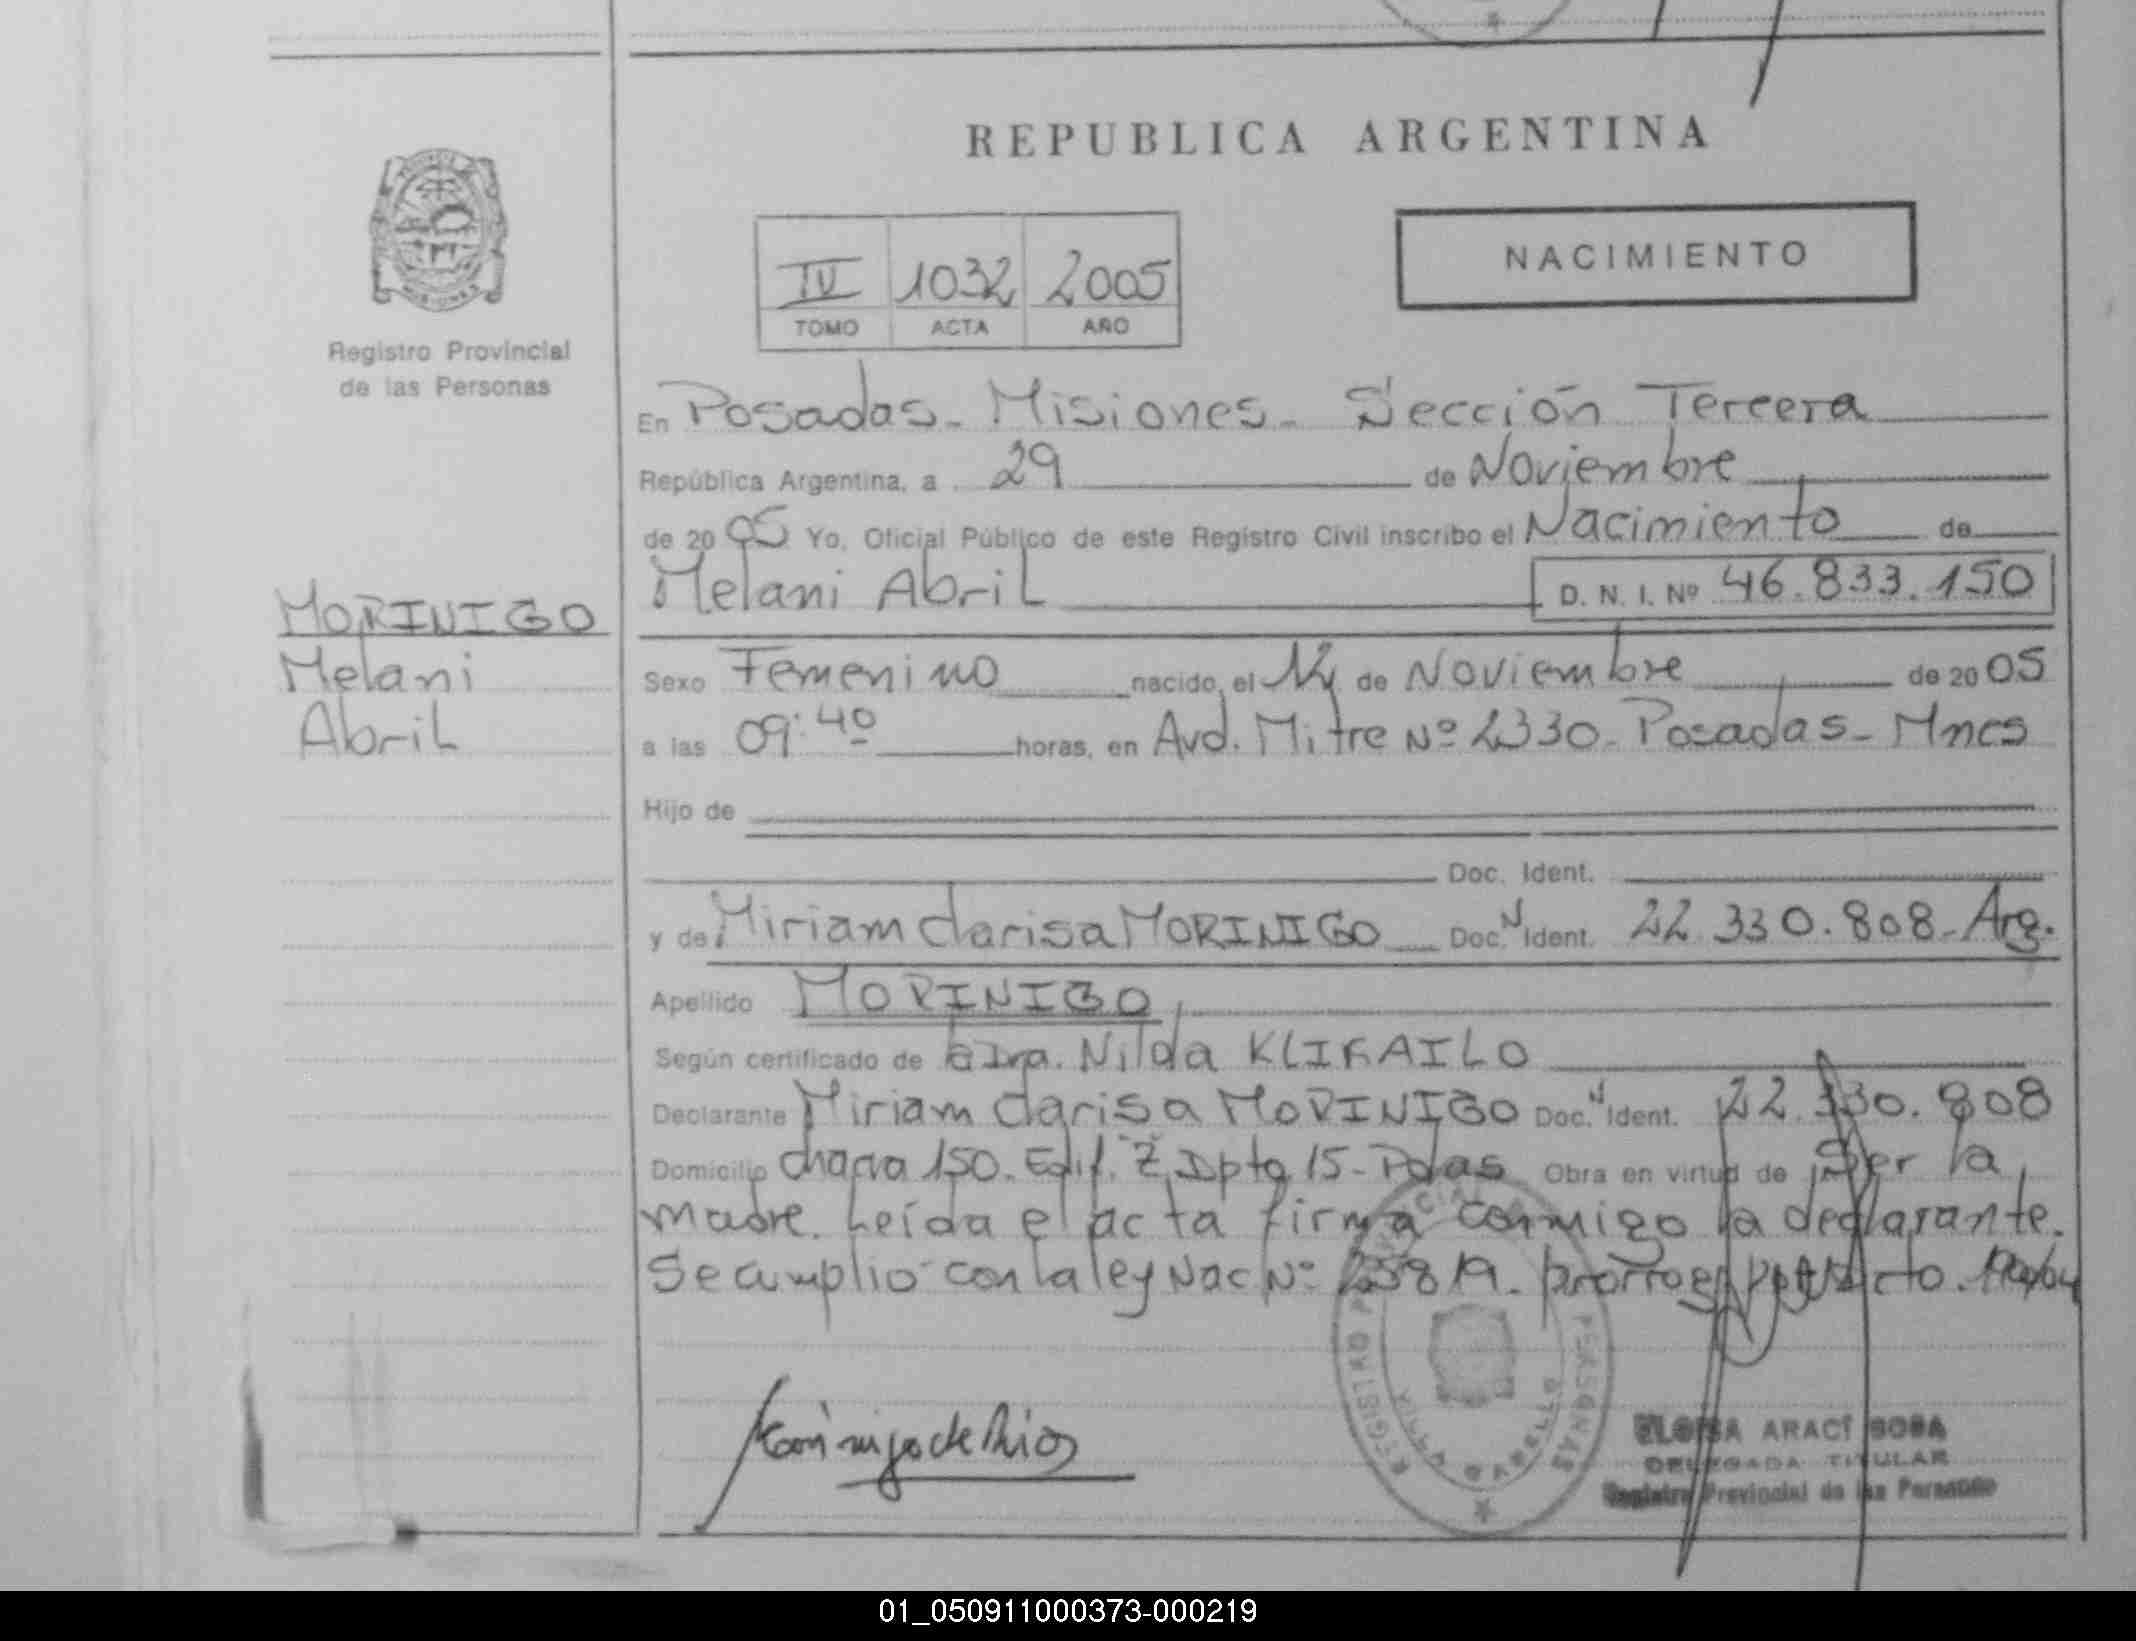 REPUBLICA ARGENTINA
NACIMIENTO
IV 1032 2005
TOMO ACTA AÑO
Registro Provincial
de las Personas
MORINIGO
Melani
Abril
En Posadas - Misiones - Sección Tercera
República Argentina, a 29 de Noviembre
de 2005 Yo, Oficial Público de este Registro Civil inscribo el Nacimiento de
Melani Abril D. N. I. Nº 46.833.150
Sexo Femenino nacido, el 14 de Noviembre de 2005
a las 09:40 horas, en Avd. Mitre Nº 2330 - Posadas - Mnes
Hijo de
Doc. Ident.
y de Miriam Clarisa MORINIGO Doc. N Ident. 22.330.808 - Arg.
Apellido MORINIGO
Según certificado de Dra. Nilda
Declarante Miriam Clarisa MORINIGO Doc. N Ident. 22.330.808
Domicilio chacra 150. Edif. Z Dpto 15 - Pdas Obra en virtud de Ser la
madre. Leída el acta firma conmigo la declarante.
Se cumplió con la ley Nac Nº 25819.
Morinigo de Rios
REGISTRO PROVINCIAL PERSONAS
ELOISA ARACI SOSA
DELEGADA TITULAR
Registro Provincial de las Personas
01_050911000373-000219